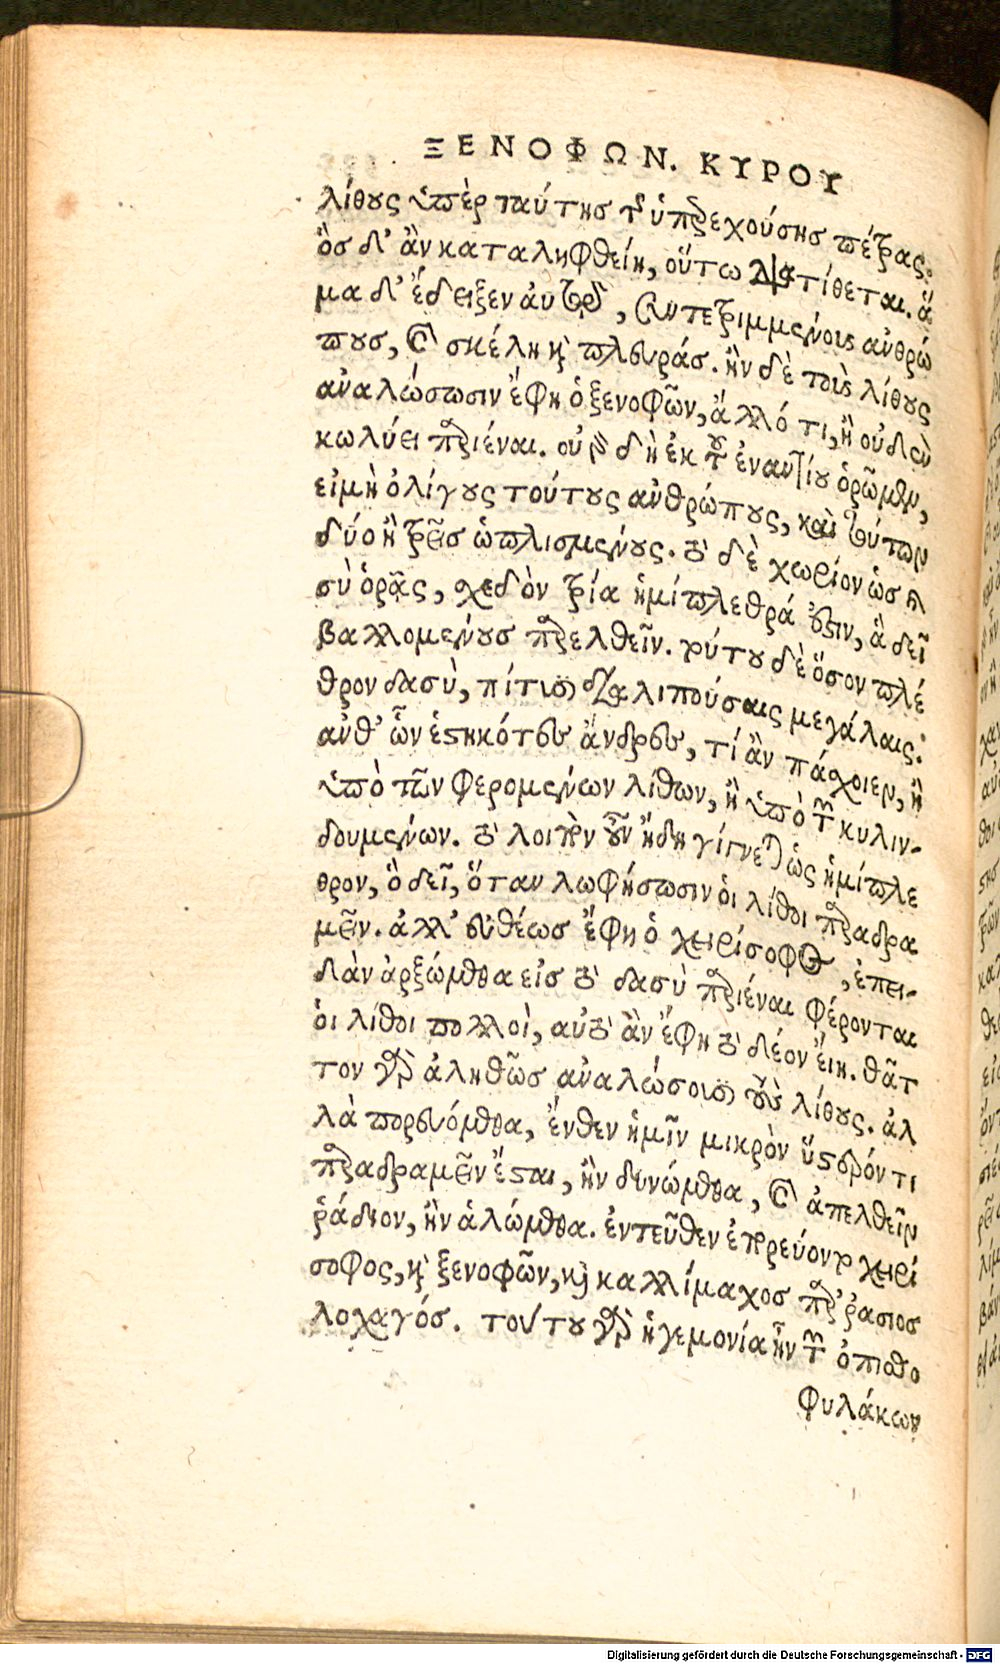 ΞΕΝΟΦΩΝ. ΚΥΡΟΥ
λίθους ὑπὲρ ταύτης τῆς ὑπερεχούσης πέτρας.
ὃς δ' ἂν καταληφθείη, οὕτω διατίθεται. ἅ
μα δ' ἔδειξεν αὐτῷ, συντετριμμένους ἀνθρώ
πους, καὶ σκέλη καὶ πλευράς. ἢν δὲ τοὺς λίθους
ἀναλώσωσιν ἔφη ὁ ξενοφῶν, ἄλλό τι, ἢ οὐδὲν
κωλύει παριέναι. οὐ γὰρ δὴ ἐκ τοῦ ἐναντίου ὁρῶμεν,
εἰ μὴ ὀλίγους τούτους ἀνθρώπους, καὶ τούτων
δύο ἢ τρεῖς ὡπλισμένους. τὸ δὲ χωρίον ὡς καὶ
σὺ ὁρᾷς, σχεδὸν τρία ἡμίπλεθρά ἐστιν, ἃ δεῖ
βαλλομένους παρελθεῖν. τούτου δὲ ὅσον πλέ
θρον δασὺ, πίτυσι διαλιπούσαις μεγάλαις.
ἀνθ' ὧν ἑστηκότες ἄνδρες, τί ἂν πάσχοιεν, ἢ
ὑπὸ τῶν φερομένων λίθων, ἢ ὑπὸ τῶν κυλιν-
δουμένων. τὸ λοιπὸν οὖν ἤδη γίγνεται ὡς ἡμίπλε
θρον, ὃ δεῖ, ὅταν λωφήσωσιν οἱ λίθοι παραδρα
μεῖν. ἀλλ' εὐθέως ἔφη ὁ χειρίσοφος, ἐπει-
δὰν ἀρξώμεθα εἰς τὸ δασὺ παριέναι φέρονται
οἱ λίθοι πολλοὶ, αὐτὸ ἂν ἔφη τὸ δέον εἴη. θᾶτ
τον γὰρ ἀληθῶς ἀναλώσουσι τοὺς λίθους. ἀλ
λὰ πορευόμεθα, ἔνθεν ἡμῖν μικρὸν ὕστερόν τι
παραδραμεῖν ἔσται, ἢν δυνώμεθα, καὶ ἀπελθεῖν
ῥάδιον, ἢν ἁλώμεθα. ἐντεῦθεν ἐπορεύοντο χειρί
σοφος, καὶ ξενοφῶν, καὶ καλλίμαχος παρράσιος
λοχαγός. τούτου γὰρ ἡγεμονία ἦν τῶν ὀπισθο
φυλάκων
Digitalisierung gefördert durch die Deutsche Forschungsgemeinschaft - DFG